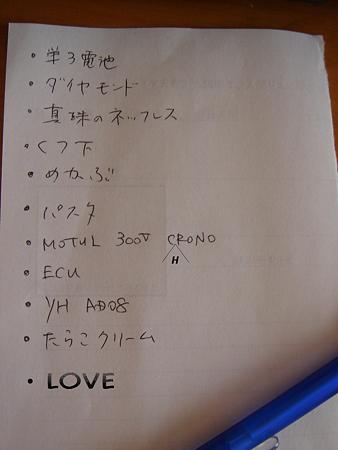 ・単3電池
・ダイヤモンド
・真珠のネックレス
・くつ下
・めかぶ
・パスタ
・MOTUL 300V CRONO
H
・ECU
・YH AD08
・たらこクリーム
・LOVE